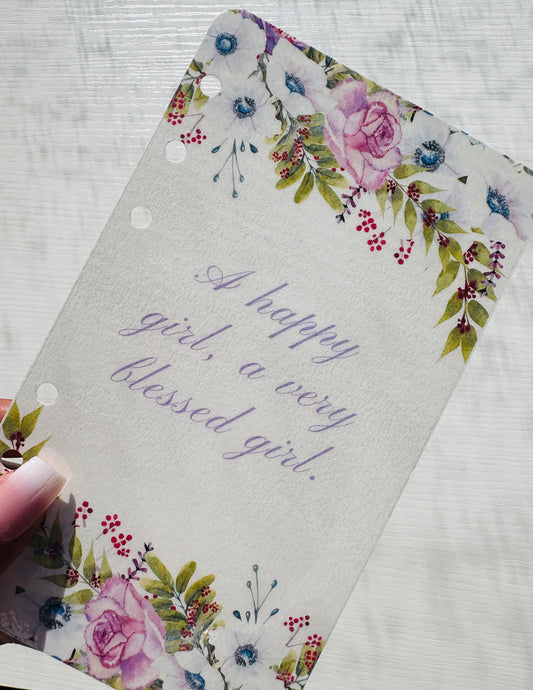 A happy
girl, a very
blessed girl.